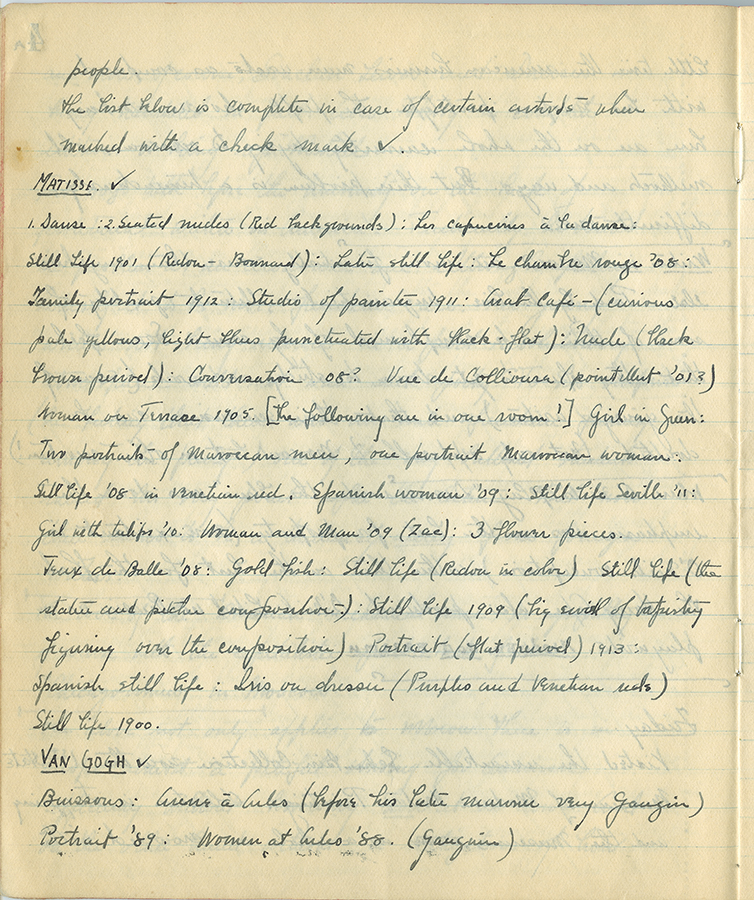 people.
The list below is complete in case of certain artists when
marked with a check mark ✓.
MATISSE. ✓
1. Danse : 2. Seated nudes (Red backgrounds) : Les capucines à la danse :
Still life 1901 (Redon - Bonnard) : Late still life : Le chambre rouge '08 :
Family portrait 1912 : Studio of painter 1911 : Arab Café - (curious
pale yellows, light blues punctuated with black - flat) : Nude (black
brown period) : Conversation 08? Vue de Collioure (pointillist '01?)
Woman on Terrace 1905. [The following are in one room!] Girl in Green :
Two portraits of Maroccan men, one portrait Maroccan woman :
Still life '08 in venetian red. Spanish woman '09 : Still life Seville '11 :
Girl with tulips '10 : Woman and Man '09 (Zac) : 3 flower pieces.
Jeux de Balle '08 : Gold fish : Still life (Redon in color) Still life (the
statue and pitcher composition -) : Still life 1909 (big swirl of tapistry
figuring over the composition) Portrait (flat period) 1913 :
Spanish still life : Iris on dresser (Purples and Venetian reds)
Still life 1900.
VAN GOGH ✓
Buissons : Arene à Arles (before his late manner very Gaugin)
Portrait '89 : Women at Arles '88. (Gauguin)